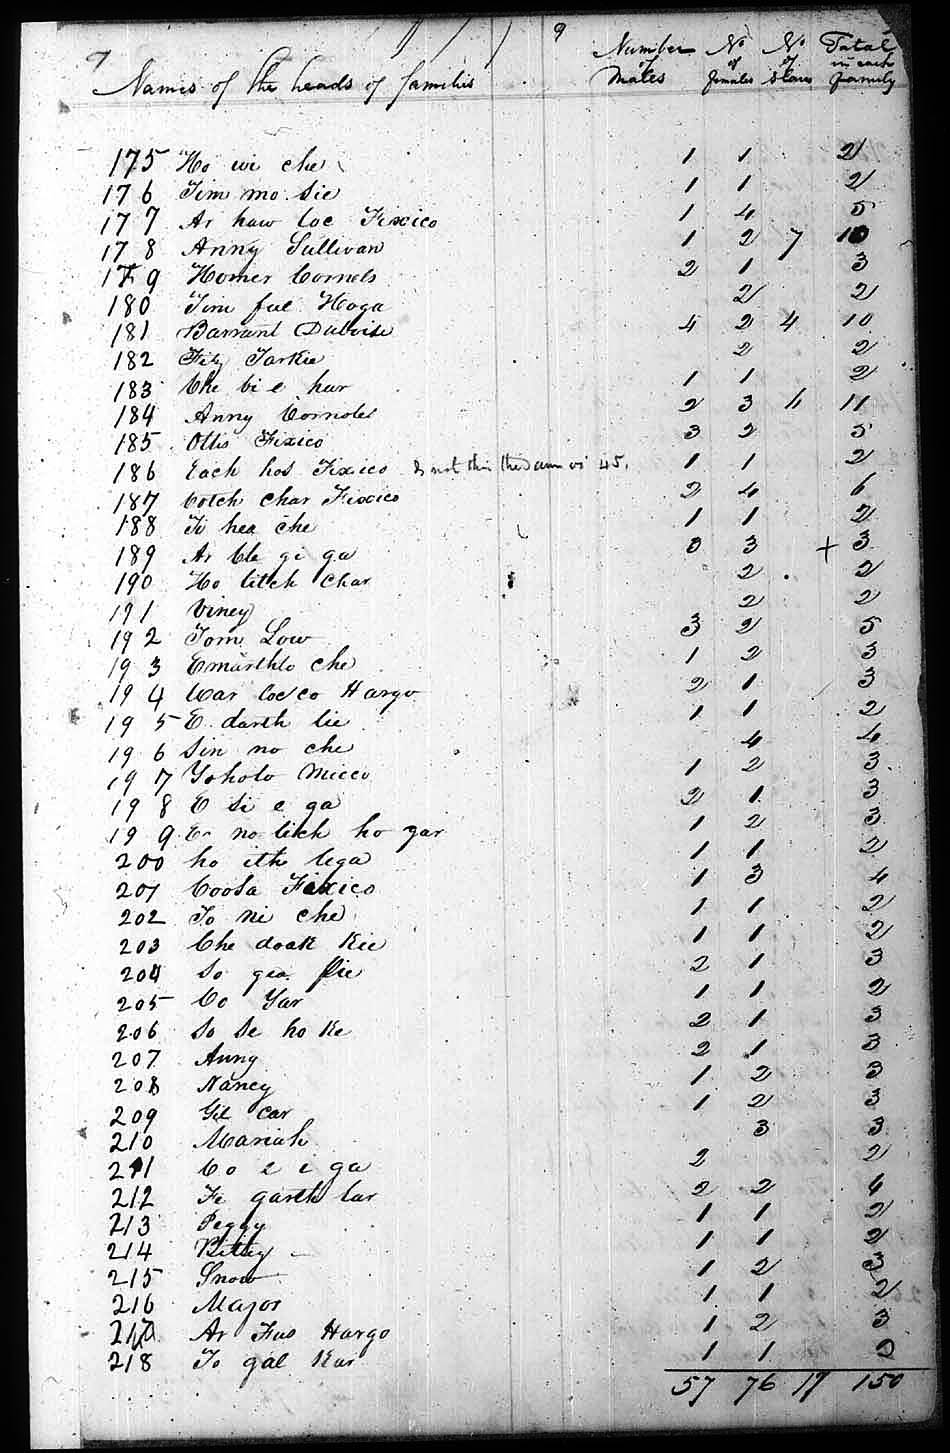 7 9
Names of the heads of families Number of Males No of females No of Slaves Total in each family
175 Ho wi che 1 1 2
176 Tim mo sie 1 1 2
177 Ar haw loc Fixico 1 4 5
178 Anny Sullivan 1 2 7 10
179 Homer Cornels 2 1 3
180 Tim ful Hoga 2 2
181 Barrant 4 2 4 10
182 Tarkie 2 2
183 Che bi e hur 1 1 2
184 Anny Cornolet 2 3 6 11
185 Ottis Fixico 3 2 5
186 Each hos Fixico Is not this the Same vs 45. 1 1 2
187 Cotch char Fixico 2 4 6
188 Ti hea che 1 1 2
189 Ar Cle gi ga 0 3 + 3
190 Ho litch char 2 2
191 Viney 2 2
192 Tom Low 3 2 5
193 Emarthlo che 1 2 3
194 War Hargo 2 1 3
195 E darth lie 1 1 2
196 Sin no che 4 4
197 Yoholo Micco 1 2 3
198 E si e ga 2 1 3
199 E no likh ho gar 1 2 3
200 ho ith lega 1 1 2
201 Coosa Fixico 1 3 4
202 To ni che 1 1 2
203 Che doak Kee 1 1 2
204 So gea 2 1 3
205 Co Yar 1 1 2
206 So se ho ke 2 1 3
207 Anny 2 1 3
208 Nancy 1 2 3
209 Gil car 1 2 3
210 Mariah 3 3
211 Co i ga 2 2
212 Fe garth lar 2 2 4
213 Peggy 1 1 2
214 Bettey 1 1 2
215 Snow 1 2 3
216 Major 1 1 2
217 Ar Fus Hargo 1 2 3
218 To gal Kar 1 1 2
57 76 17 150